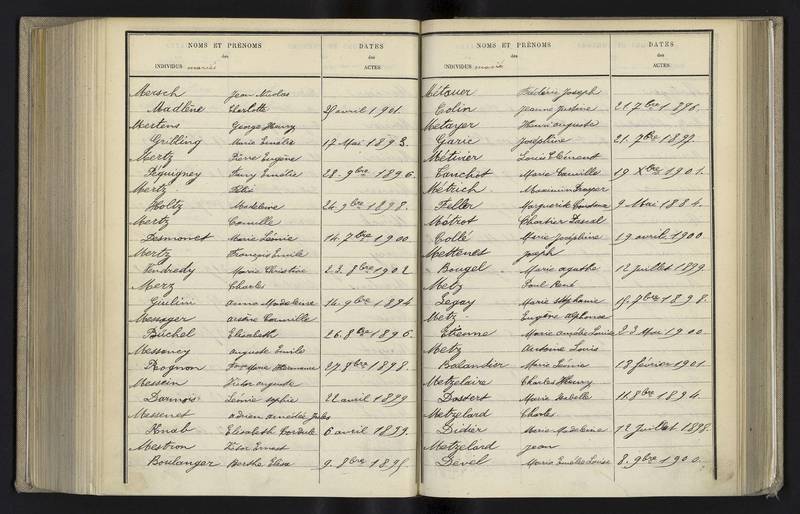 NOMS ET PRÉNOMS DATES
des des
INDIVIDUS mariés ACTES
Mersch Jean Nicolas
Madeline Charlotte 29 avril 1901.
Mertens George Henry
Grilling Marie Emélie 17 Mai 1893.
Mertz Pierre Eugène
Péquigney Emélie 28. 9bre 1896.
Mertz
Holtz Madeleine 24. 9bre 1898.
Mertz Camille
Desmonet Marie Léonie 14. 7bre 1900.
Mertz François Emile
Vendredy Marie Christine 23. 8bre 1902
Merz Charles
Giulini Anna Madeleine 14. 9bre 1894
Messager Arsène Camille
Büchel Elisabeth 26. 8bre 1896.
Messancy Auguste Emile
Rognon Marie Hermance 27. 8bre 1898.
Messein Victor Auguste
Darnois Léonie Sophie 22 avril 1899
Messenet Adrien Amédée Jules
Knab Elisabeth Cordule 6 avril 1899.
Mestron Ernest
Boulanger Berthe Elise 9. 8bre 1895.
NOMS ET PRÉNOMS DATES
des des
INDIVIDUS mariés ACTES
Métauer Frédéric Joseph
Colin Jeanne Justine 21. 7bre 1896.
Metayer Henri Auguste
Garic Joséphine 21. 7bre 1897.
Métivier Louis
Canchot Marie Camille 19 Xbre 1901.
Métrich
Feller Marguerite 9 Mai 1884.
Métrot Pascal
Collé Marie Joséphine 19 avril 1900
Mettenet Joseph
Bougel Marie Agathe 12 juillet 1899.
Metz Paul René
Legay Marie Stéphanie 15. 7bre 1898.
Metz Eugène Alphonse
Etienne Marie Amélie Louise 23 Mai 1900.
Metz Antoine Louis
Balandier Marie Léonie 18 février 1901
Metzelaire Charles Henry
Dostert Marie Isabelle 11. 8bre 1894.
Metzelard Charles
Didier Marie Madeleine 12 juillet 1898.
Metzelard Jean
Devel Maria Emélie Louise 8. 9bre 1900.